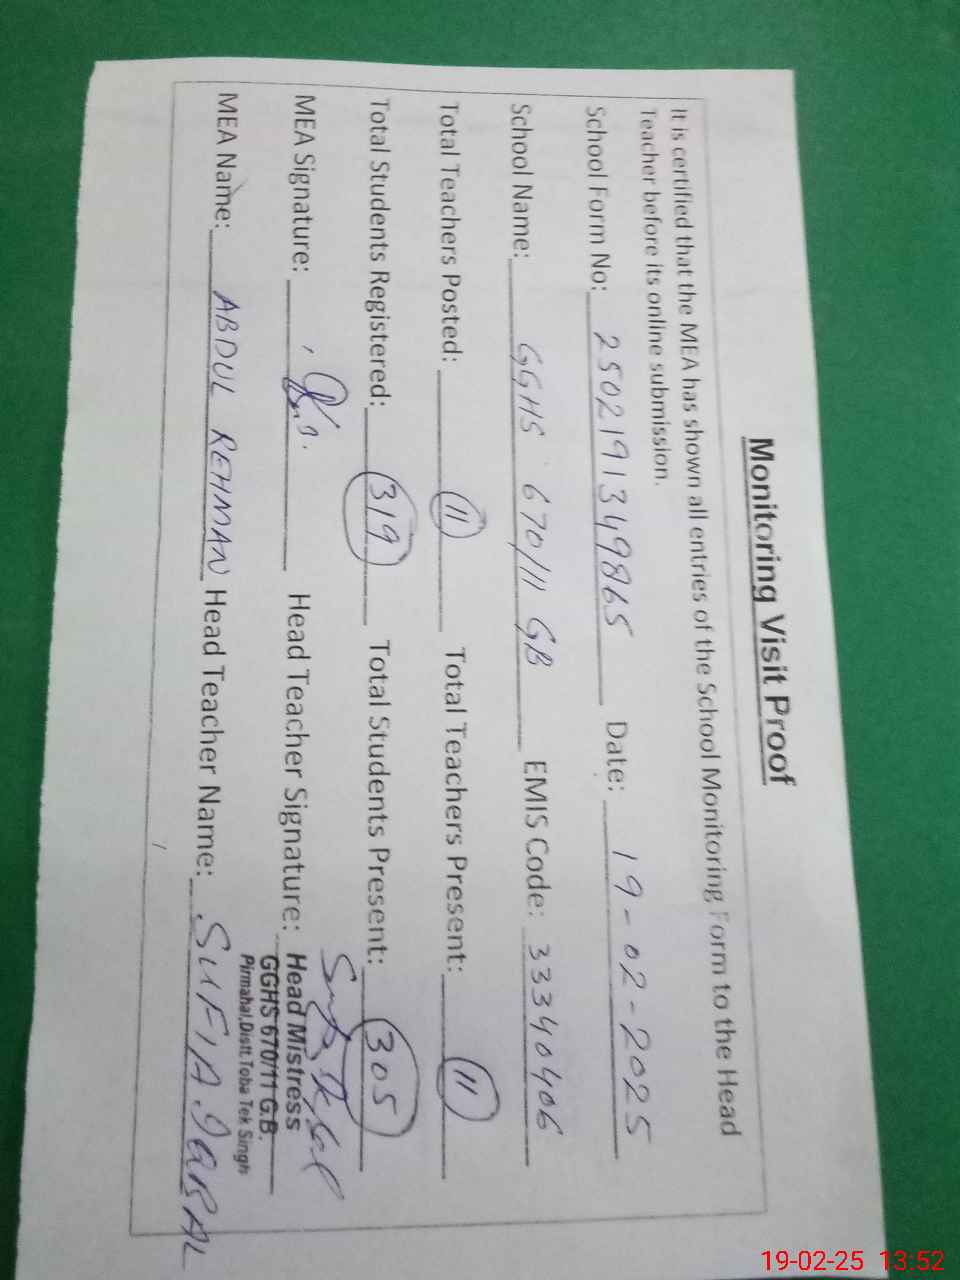 Monitoring Visit Proof
It is certified that the MEA has shown all entries of the School Monitoring Form to the Head
Teacher before its online submission.
School Form No: 25021913498​65 Date: 19-02-2025
School Name: GGHS 670/11 GB EMIS Code: 33340406
Total Teachers Posted: 11 Total Teachers Present: 11
Total Students Registered: 319 Total Students Present: 305
MEA Signature: Head Teacher Signature:
Head Mistress
GGHS 670/11 G.B.
Pirmahal,Distt.Toba Tek Singh
MEA Name: ABDUL REHMAN Head Teacher Name: SUFIA IQBAL
19-02-25 13:52